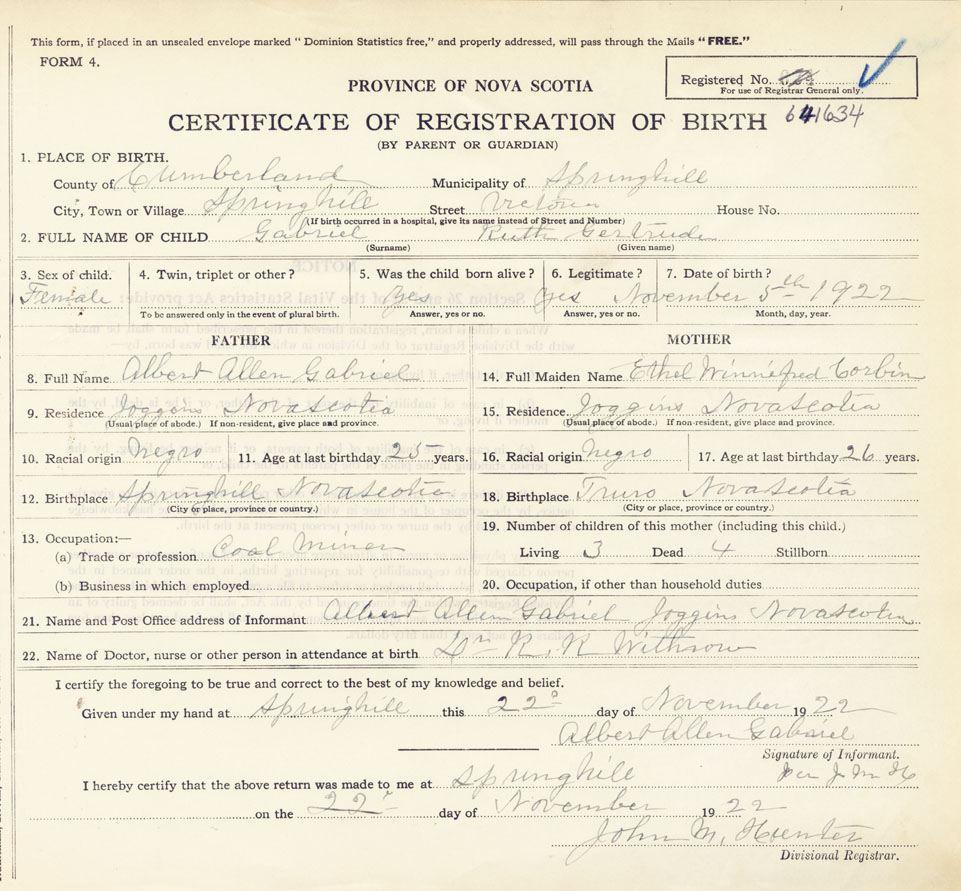 This form, if placed in an unsealed envelope marked " Dominion Statistics free," and properly addressed, will pass through the Mails "FREE."
FORM 4.
PROVINCE OF NOVA SCOTIA
Registered No.
For use of Registrar General only.
641634
CERTIFICATE OF REGISTRATION OF BIRTH
(BY PARENT OR GUARDIAN)
1. PLACE OF BIRTH.
County of Cumberland Municipality of Springhill
City, Town or Village Springhill Street Victoria House No.
(If birth occurred in a hospital, give its name instead of Street and Number)
2. FULL NAME OF CHILD Gabriel Ruth Gertrude
(Surname) (Given name)
3. Sex of child. 4. Twin, triplet or other? 5. Was the child born alive? 6. Legitimate? 7. Date of birth?
Female Yes Yes November 5th 1922
To be answered only in the event of plural birth. Answer, yes or no. Answer, yes or no. Month, day, year.
FATHER MOTHER
8. Full Name Albert Allen Gabriel 14. Full Maiden Name Ethel Winnefred Corbin
9. Residence Joggins Nova Scotia 15. Residence. Joggins Nova Scotia
(Usual place of abode.) If non-resident, give place and province. (Usual place of abode.) If non-resident, give place and province.
10. Racial origin Negro 11. Age at last birthday 25 years. 16. Racial origin Negro 17. Age at last birthday 26 years.
12. Birthplace Springhill Nova Scotia 18. Birthplace Truro Nova Scotia
(City or place, province or country.) (City or place, province or country.)
19. Number of children of this mother (including this child.)
13. Occupation:—
(a) Trade or profession Coal Miner Living 3 Dead 4 Stillborn
(b) Business in which employed 20. Occupation, if other than household duties
21. Name and Post Office address of Informant Albert Allen Gabriel Joggins Nova Scotia
22. Name of Doctor, nurse or other person in attendance at birth Dr R. K Withrow
I certify the foregoing to be true and correct to the best of my knowledge and belief.
Given under my hand at Springhill this 22 day of November 1922
Albert Allen Gabriel
Signature of Informant.
per J M H
I hereby certify that the above return was made to me at Springhill
on the 22 day of November 1922
John M. Hunter
Divisional Registrar.